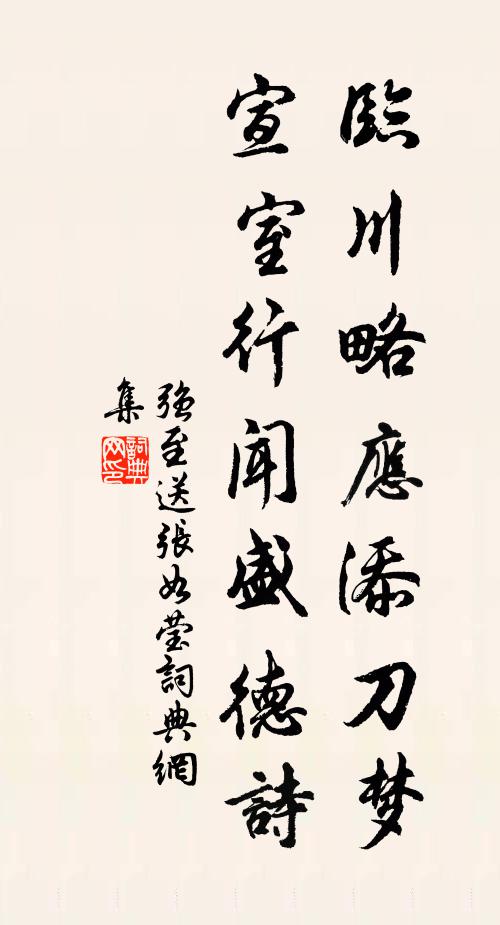 臨川略應添刀梦
宣室行聞盛德詩
強至送張如瑩詞典網
集
詞典網印